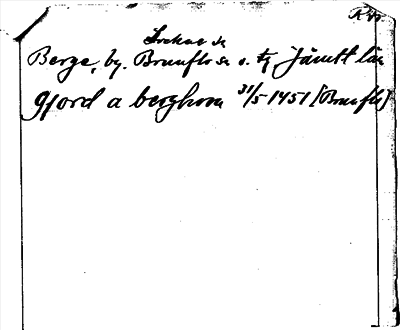 Lockne sn
Berge, by. Brunflo sn o. tg, Jämtl. län
gjord a berghom 31/5 1451 (Brunflo)